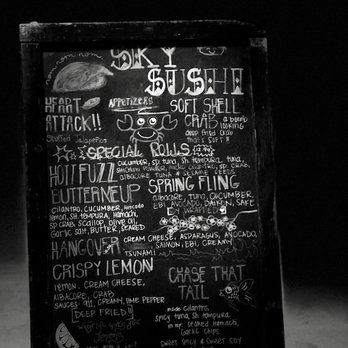 nom nom nom
SKY
SUSHI
HEART
ATTACK!!
Stuffed Jalapeños
APPETIZERS
SOFT SHELL
CRAB
deep fried crab
that's SOFT!!
SPECIAL ROLLS
HOTT FUZZ
cucumber, sp tuna, sh. tempura, tuna,
ALBACORE TUNA & SESAME SEEDS
BUTTERNEUP
CILANTRO, CUCUMBER, avocado
lemon, sh. tempura, Hamachi,
sp crab, scallop, olive oil,
Garlic salt, BUTTER, SEARED
SPRING FLING
albacore, tuna, CUCUMBER,
EBI, AVOCADO, DAIKON, SAFE
BY WRAPPED
HANGOVER
CREAM CHEESE, ASPARAGUS, AVOCADO,
SALMON, EBI, CREAMY
TSUNAMI
CRISPY LEMON
Lemon, CREAM CHEESE,
ALBACORE, CRAB
SAUCES: 911, CREAMY, lime PEPPER
[DEEP FRIED]
CHASE THAT
TAIL
inside: cilantro,
spicy tuna, sh. tempura
seared hamachi,
Garlic Chips
Sweet Spicy & Sweet Soy